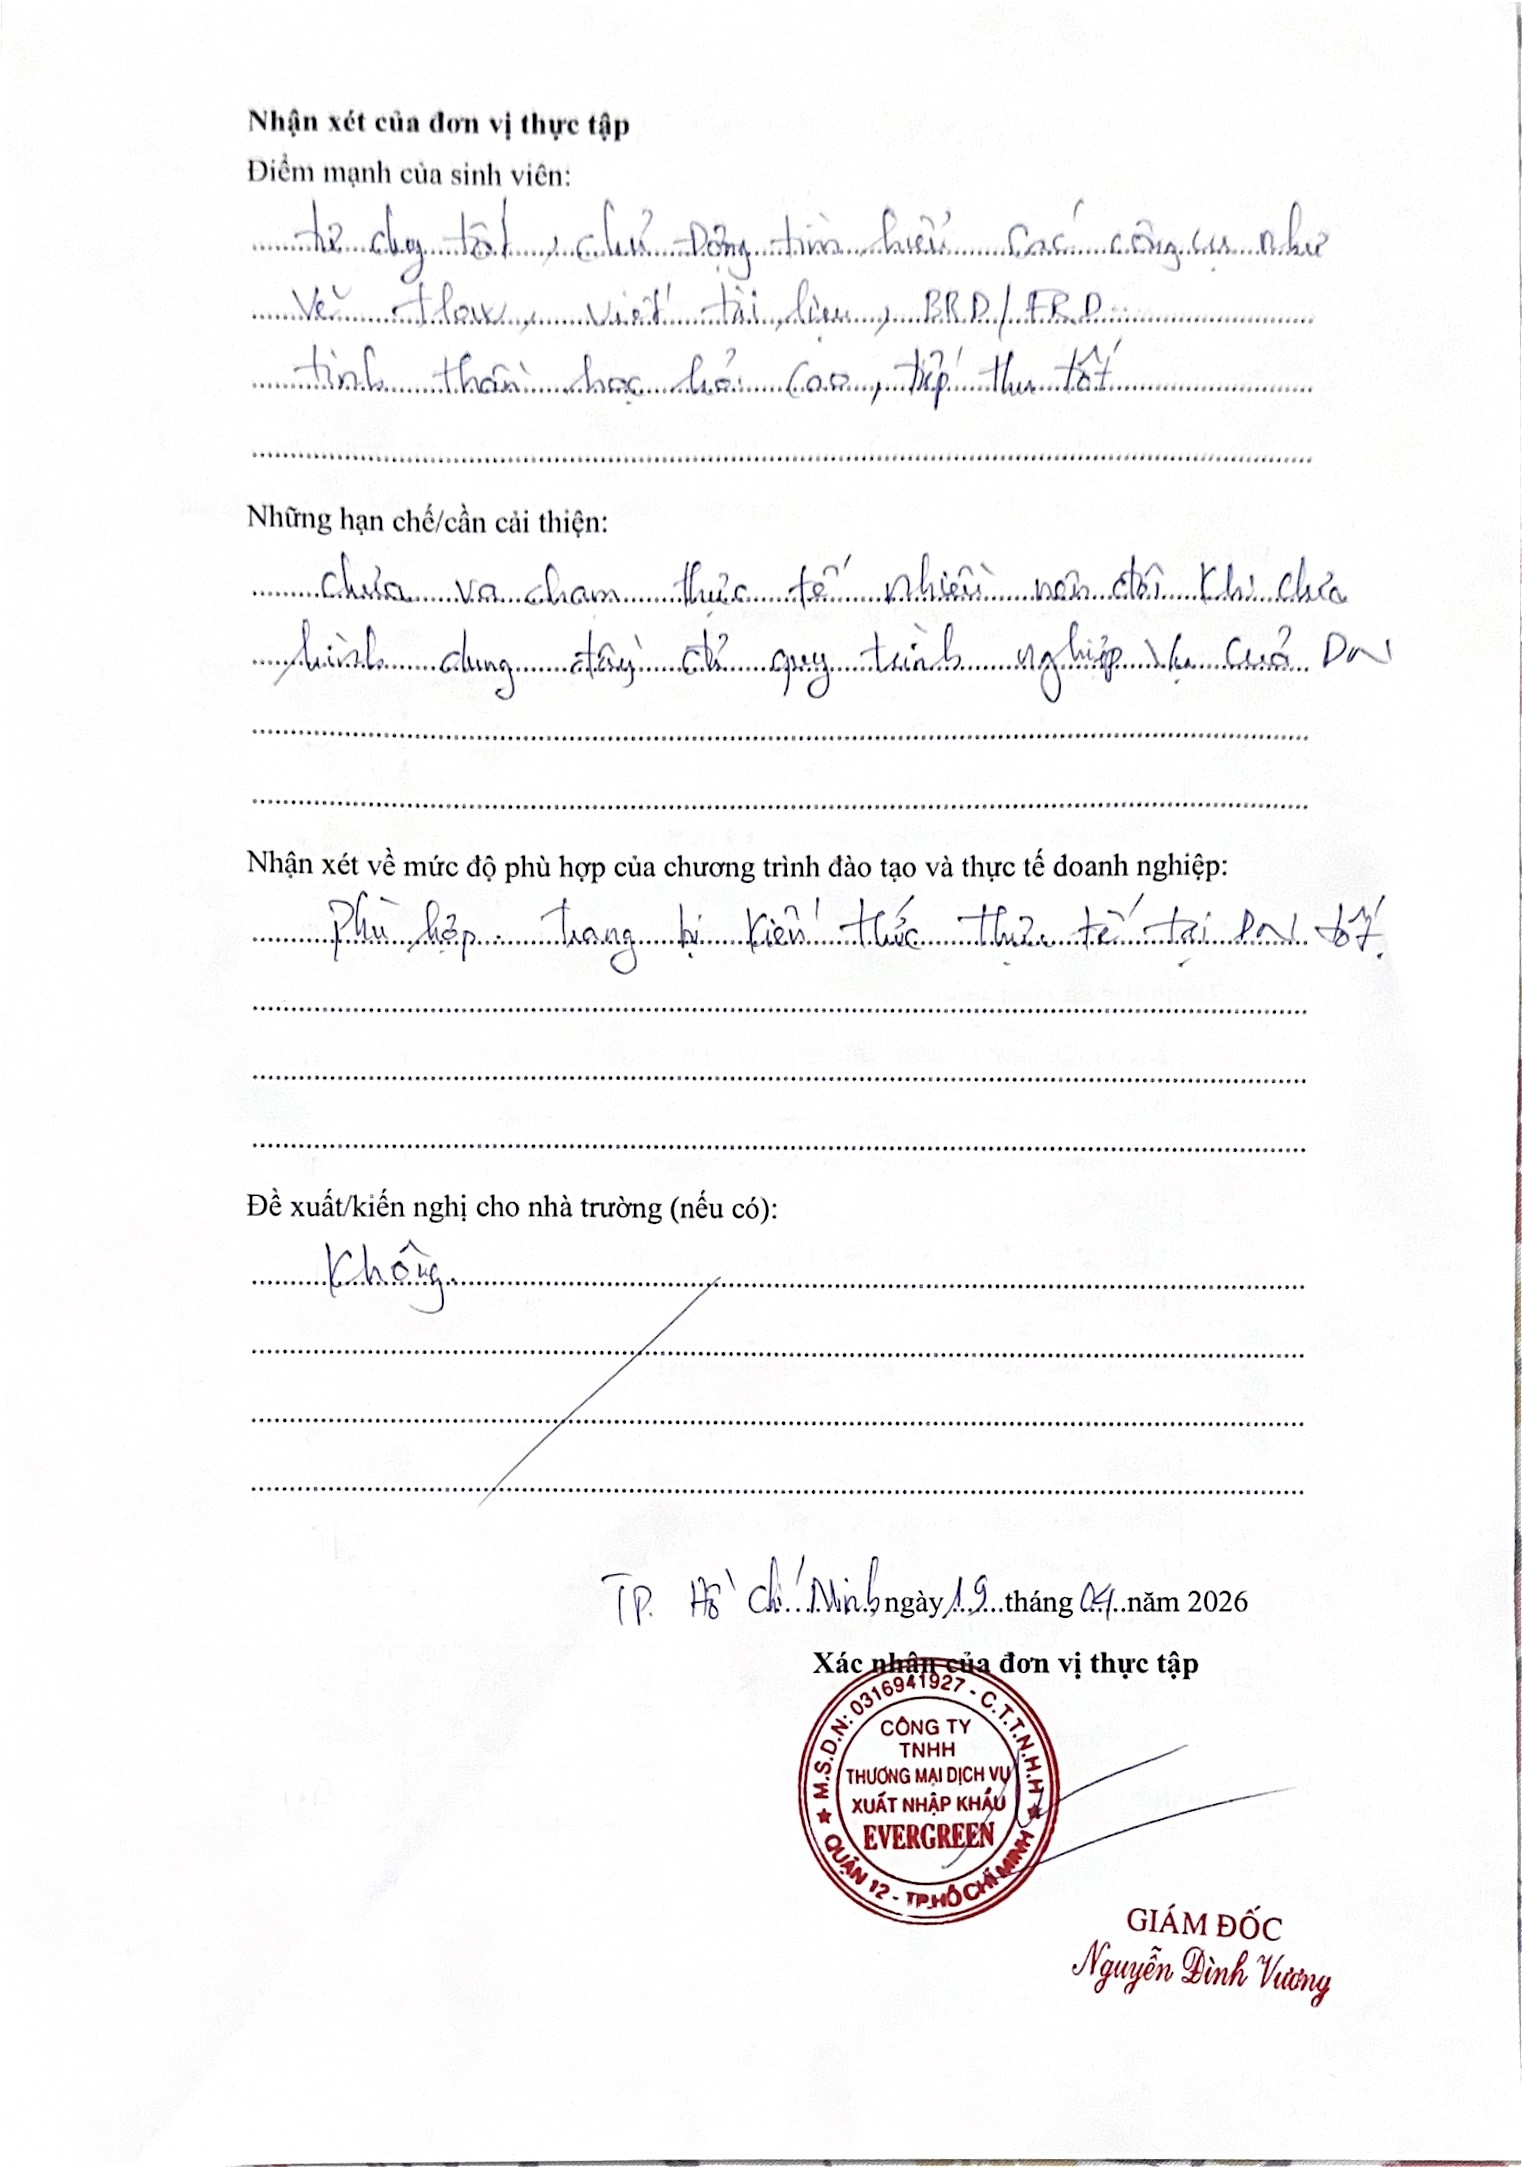 Nhận xét của đơn vị thực tập
Điểm mạnh của sinh viên:
tư duy tốt, chủ động tìm hiểu các công cụ như
vẽ flow, viết tài liệu, BRD/FRD
tinh thần học hỏi cao, tiếp thu tốt
Những hạn chế/cần cải thiện:
chưa va chạm thực tế nhiều nên đôi khi chưa
hình dung đầy đủ quy trình nghiệp vụ của DN
Nhận xét về mức độ phù hợp của chương trình đào tạo và thực tế doanh nghiệp:
Phù hợp. trang bị kiến thức thực tế tại DN tốt.
Đề xuất/kiến nghị cho nhà trường (nếu có):
Không.
TP. Hồ Chí Minh ngày 19 tháng 04 năm 2026
Xác nhận của đơn vị thực tập
M.S.D.N: 0316941927 - C.T.T.N.H.H
CÔNG TY
TNHH
THƯƠNG MẠI DỊCH VỤ
XUẤT NHẬP KHẨU
EVERGREEN
QUẬN 12 - TP.HỒ CHÍ MINH
GIÁM ĐỐC
Nguyễn Đình Vương